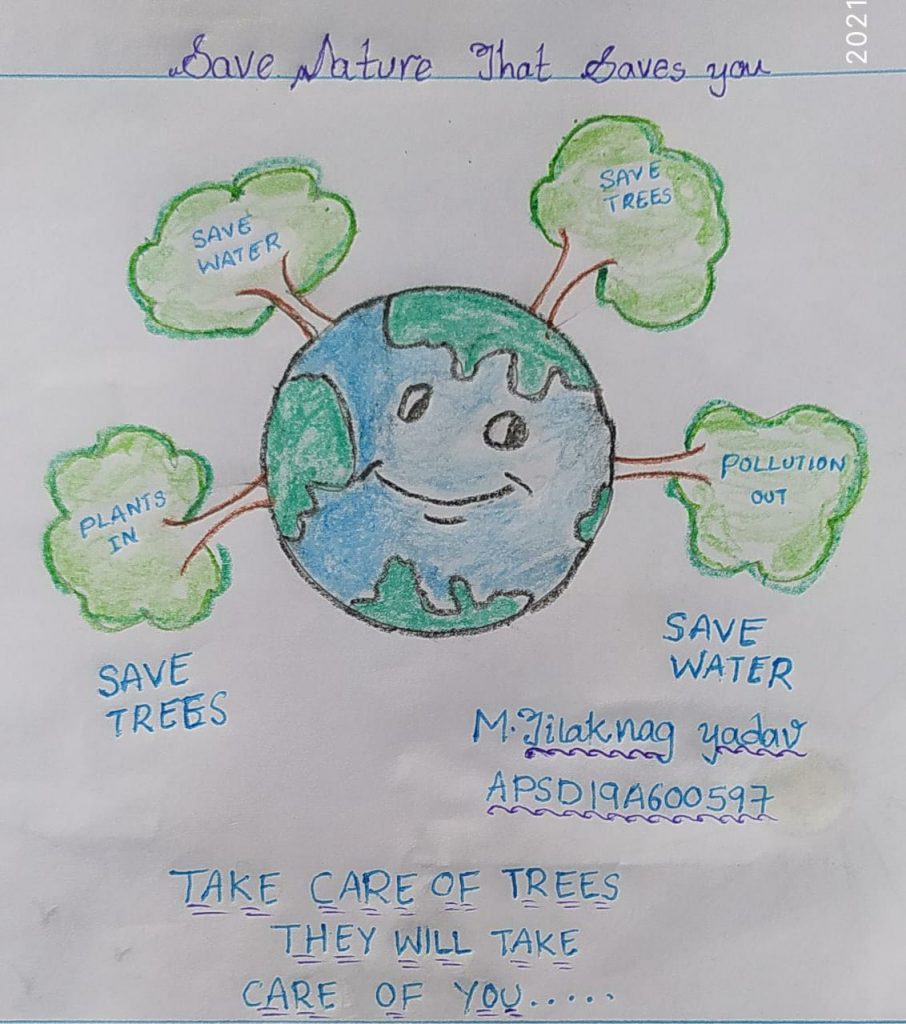 2021
Save Nature That Saves you
SAVE
WATER
SAVE
TREES
PLANTS
IN
POLLUTION
OUT
SAVE
TREES
SAVE
WATER
M.Tilaknag yadav
APSD19A600597
TAKE CARE OF TREES
THEY WILL TAKE
CARE OF YOU.....